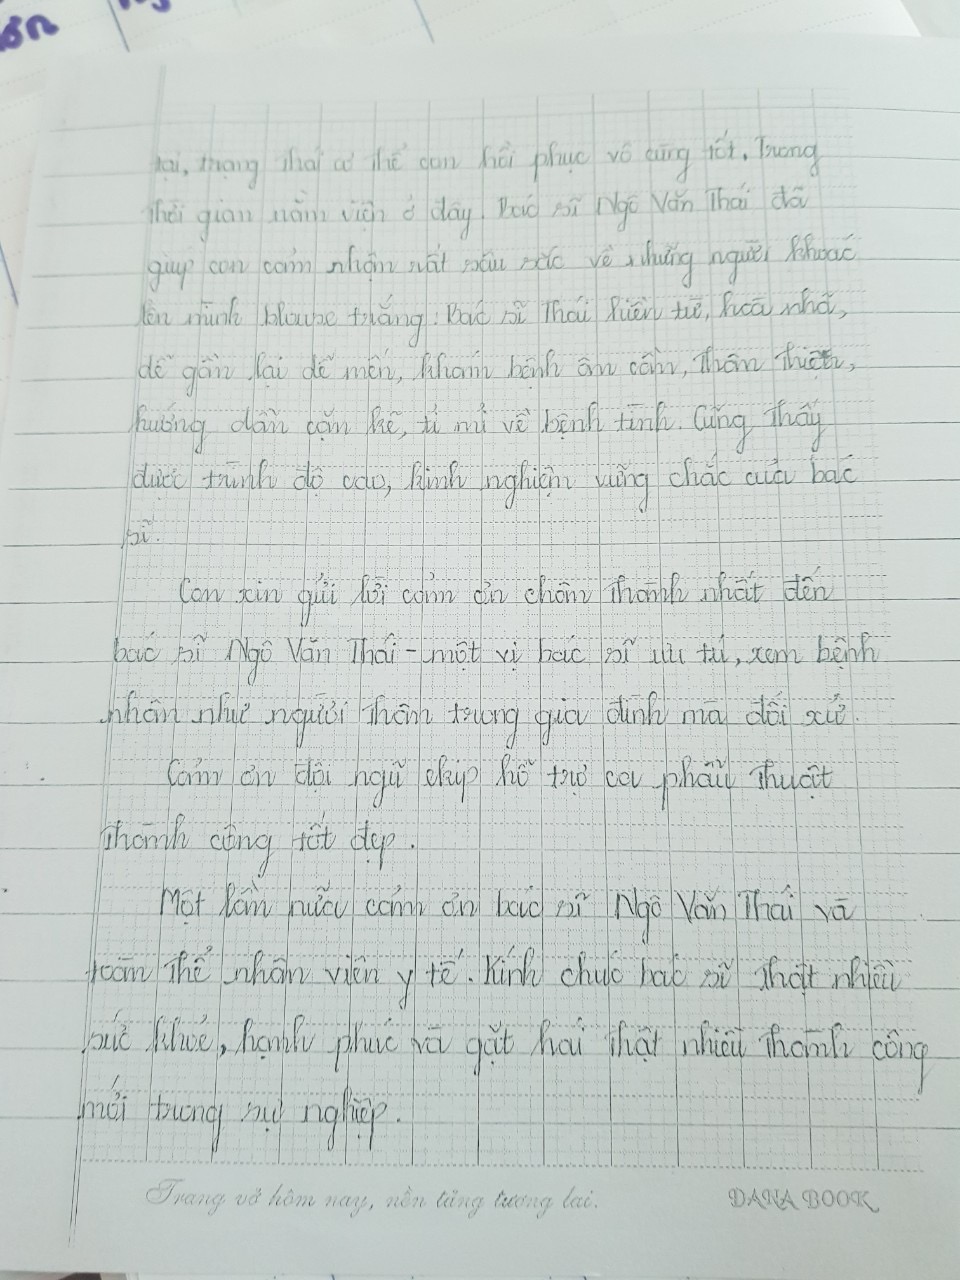 tại, trạng thái cơ thể con hồi phục vô cùng tốt. Trong
thời gian nằm viện ở đây. Bác sĩ Ngô Văn Thái đã
giúp con cảm nhận rất sâu sắc về những người khoác
lên mình blouse trắng. Bác sĩ Thái hiền từ, hoà nhã,
dễ gần lại dễ mến, khám bệnh ân cần, thân thiện,
hướng dẫn cặn kẽ, tỉ mỉ về bệnh tình. Cũng thấy
được trình độ cao, kinh nghiệm vững chắc của bác
sĩ.
Con xin gửi lời cảm ơn chân thành nhất đến
bác sĩ Ngô Văn Thái - một vị bác sĩ ưu tú, xem bệnh
nhân như người thân trong gia đình mà đối xử.
Cảm ơn đội ngũ ekip hỗ trợ ca phẫu thuật
thành công tốt đẹp.
Một lần nữa cảm ơn bác sĩ Ngô Văn Thái và
toàn thể nhân viên y tế. Kính chúc bác sĩ thật nhiều
sức khoẻ, hạnh phúc và gặt hái thật nhiều thành công
mới trong sự nghiệp.
Trang vở hôm nay, nền tảng tương lai. DANA BOOK